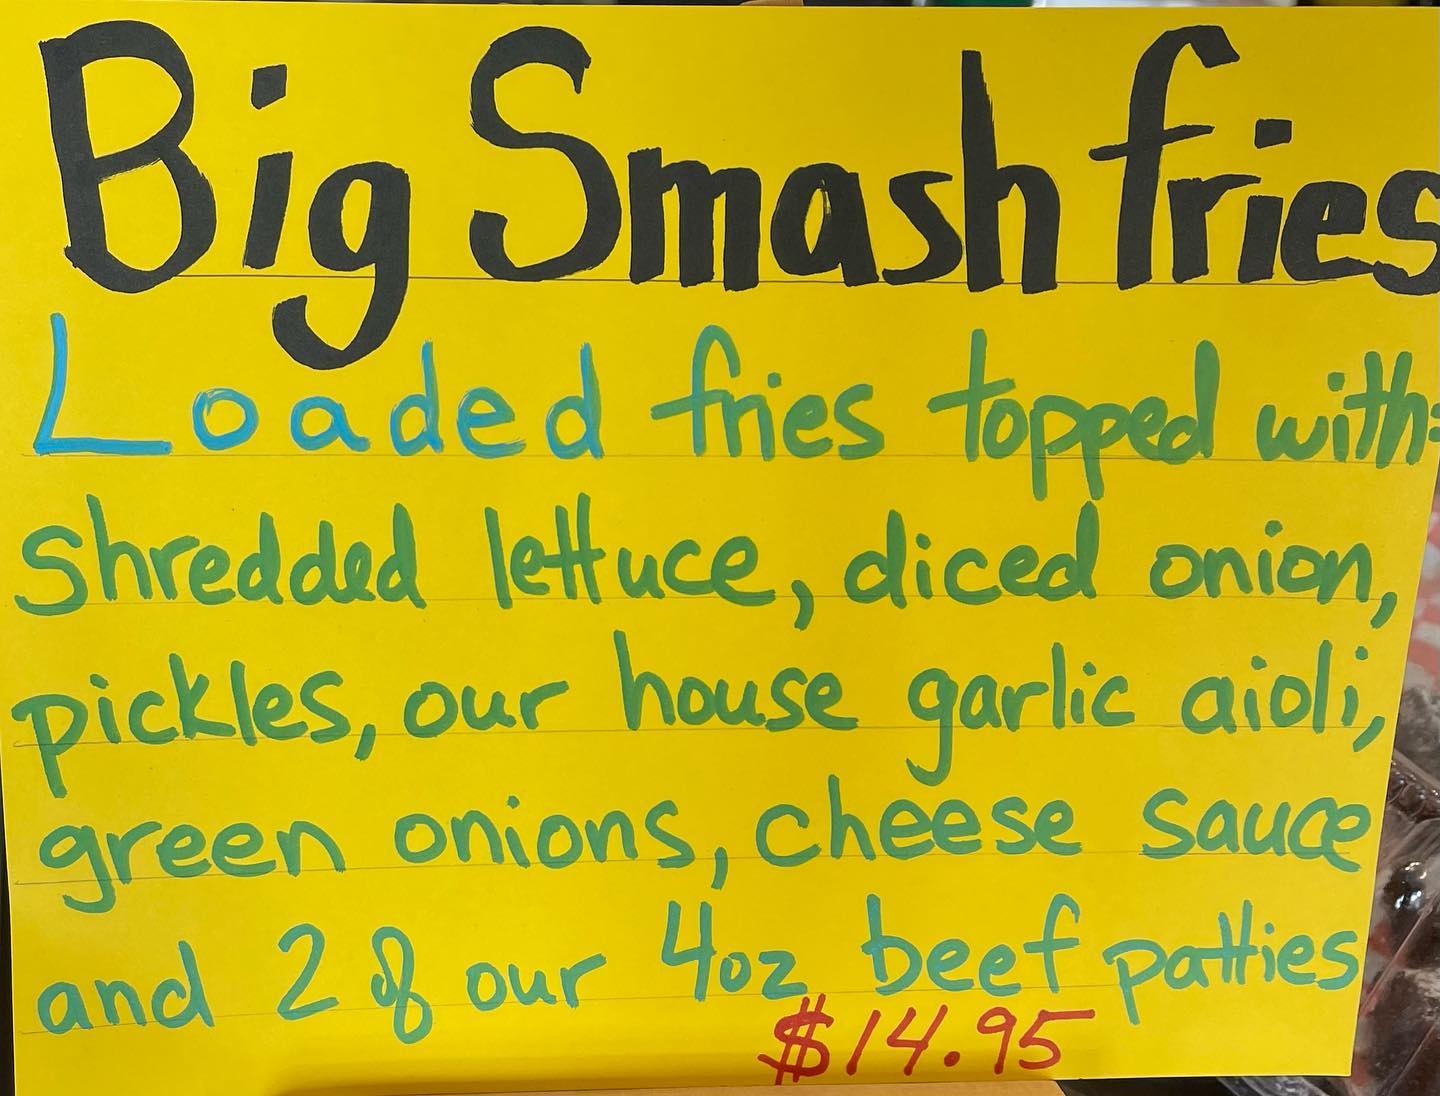 Big Smash fries
Loaded fries topped with:
shredded lettuce, diced onion,
pickles, our house garlic aioli,
green onions, cheese sauce
and 2 of our 4oz beef patties
$14.95